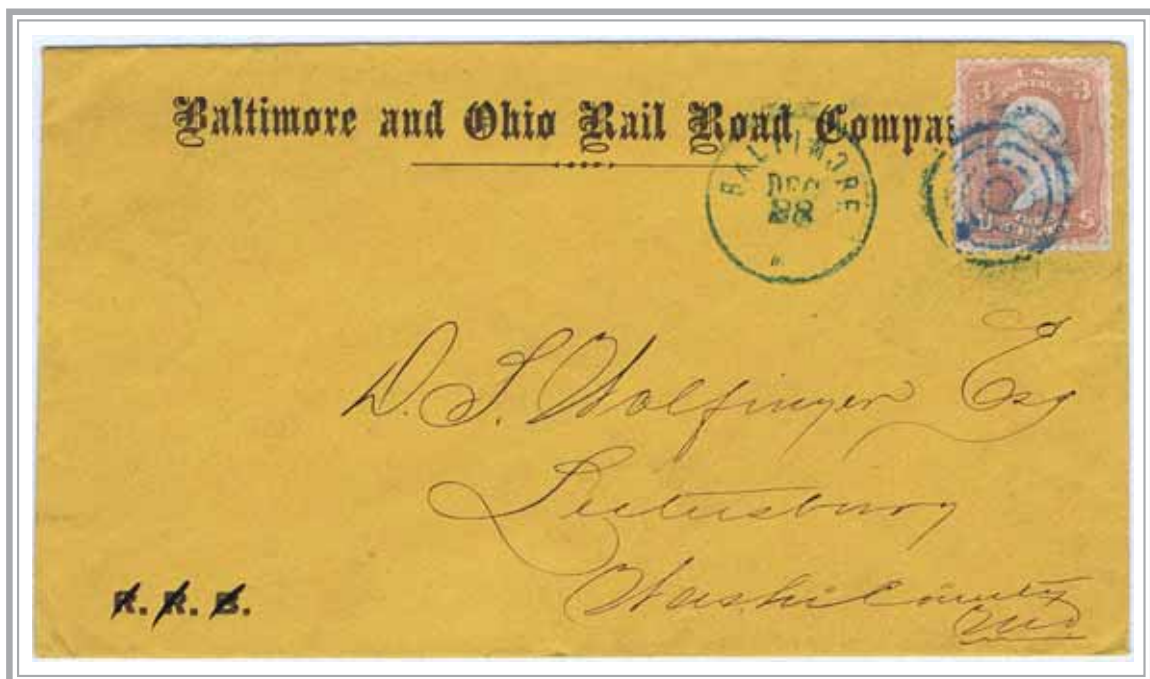 Baltimore and Ohio Rail Road Compa
3 U.S. POSTAGE 3
BALTIMORE
DEC
28
D. S. Wolfinger Esq
Leitersburg
Washi County
Md.
R. R. B.